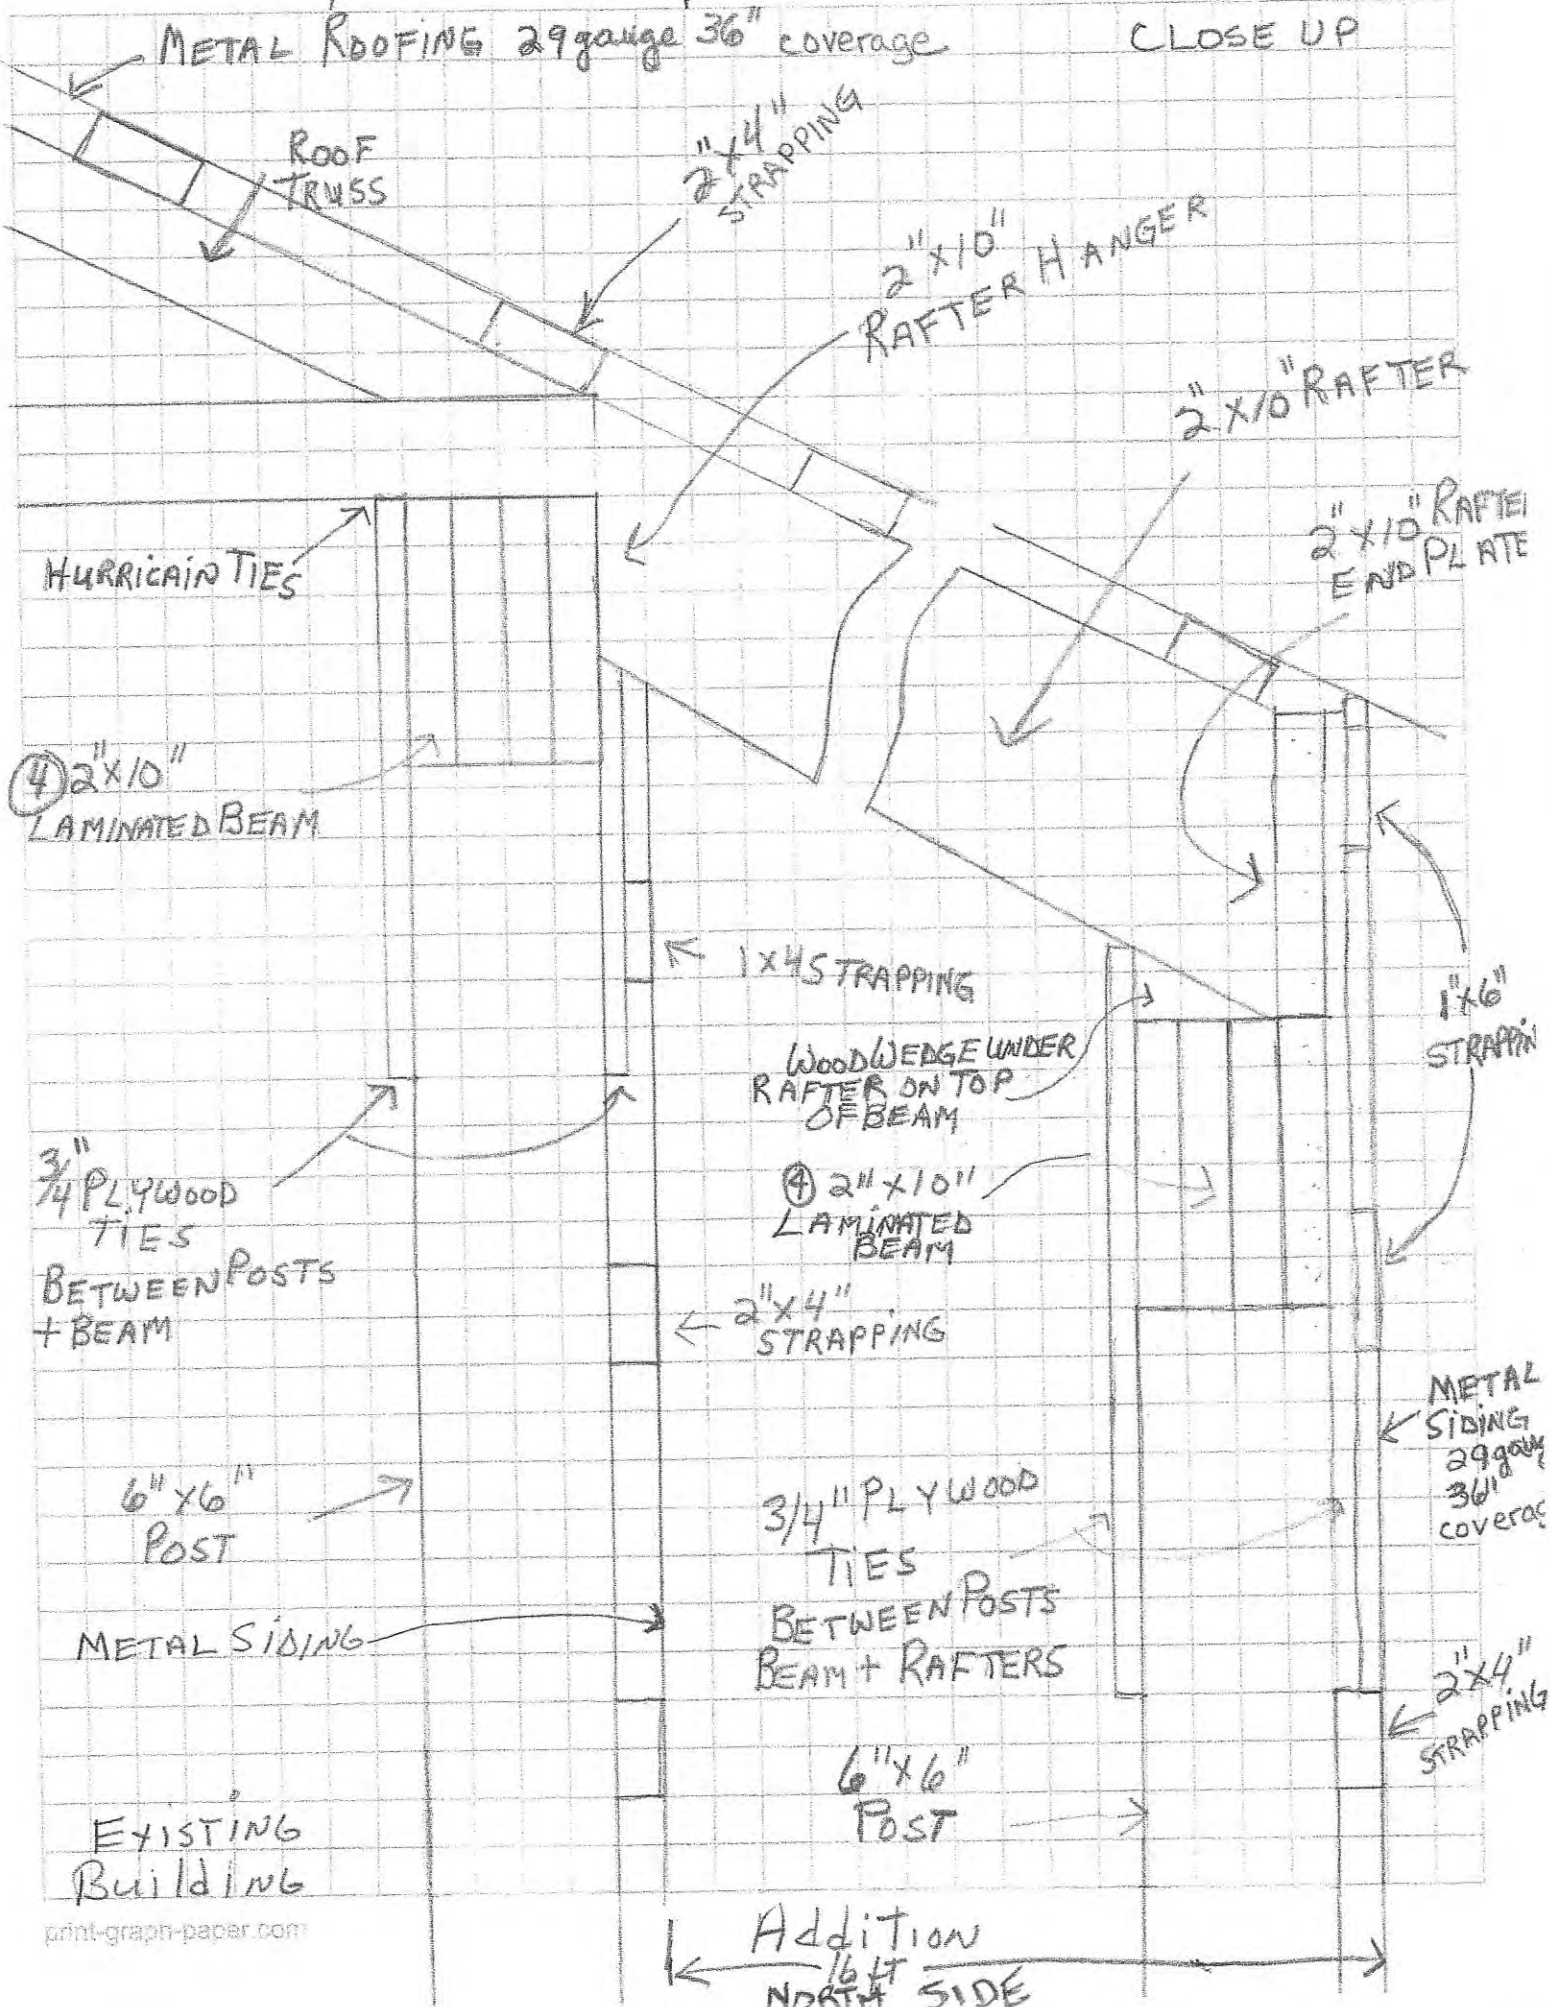 METAL ROOFING 29gauge 36" coverage
CLOSE UP
ROOF
TRUSS
2"x4"
STRAPPING
2"x10"
RAFTER HANGER
2"x10" RAFTER
2"x10" RAFTER
END PLATE
HURRICAIN TIES
④ 2"x10"
LAMINATED BEAM
1x4 STRAPPING
WOOD WEDGE UNDER
RAFTER ON TOP
OF BEAM
1"x6"
STRAPPIN
3/4" PLYWOOD
TIES
BETWEEN POSTS
+ BEAM
④ 2"x10"
LAMINATED
BEAM
2"x4"
STRAPPING
METAL
SIDING
29gaug
36"
coverag
6"x6"
POST
3/4" PLYWOOD
TIES
BETWEEN POSTS
BEAM + RAFTERS
METAL SIDING
2"x4"
STRAPPING
6"x6"
POST
EXISTING
Building
print-graph-paper.com
Addition
16 ft
NORTH SIDE